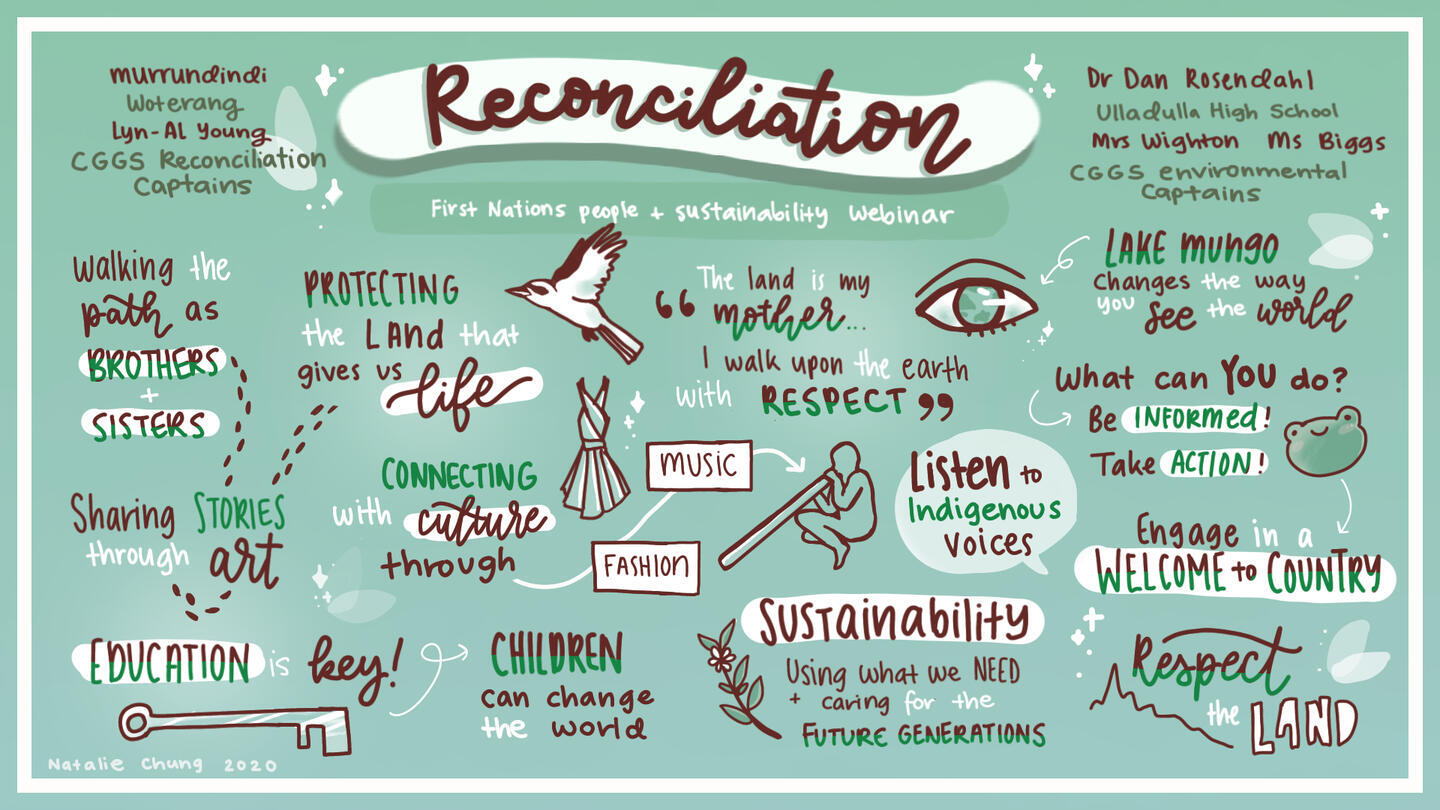 Reconciliation
First Nations people + sustainability webinar
murrundindi
Woterang
Lyn-AL Young
CGGS Reconciliation
Captains
Dr Dan Rosendahl
Ulladulla High School
Mrs Wighton Ms Biggs
CGGS environmental
Captains
Walking the
path as
BROTHERS
+
SISTERS
PROTECTING
the LAND that
gives us
life
“ The land is my
mother...
I walk upon the earth
with RESPECT ”
LAKE mungo
changes the way
you see the world
What can YOU do?
Be INFORMED!
Take ACTION!
Sharing STORIES
through art
CONNECTING
with culture
through
MUSIC
FASHION
Listen to
Indigenous
voices
Engage in a
WELCOME to COUNTRY
EDUCATION is key!
CHILDREN
can change
the world
SUSTainability
Using what we NEED
+ caring for the
FUTURE GENERATIONS
Respect
the LAND
Natalie Chung 2020